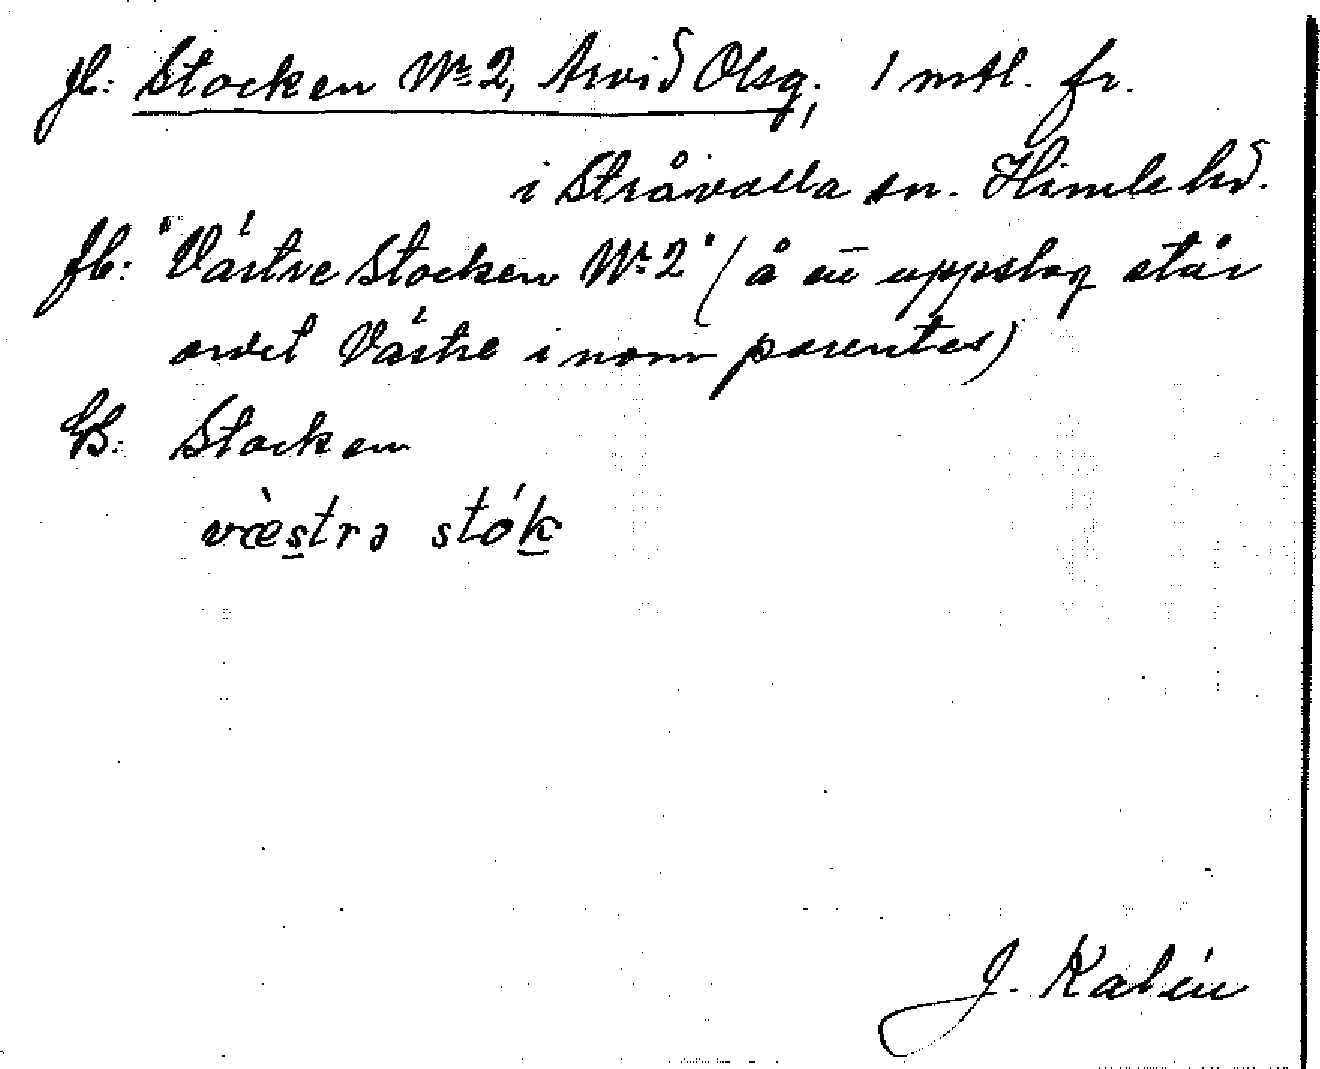 Jb: Stocken No 2, Arvid Olsg; 1 mtl. fr.
i Stråvalla sn. Himle hd.
fb: "Västre Stocken No 2" (å ett uppslag står
ordet Västre inom parentes)
GB: Stocken
væ̀s̲trə stók̲
J. Kalén